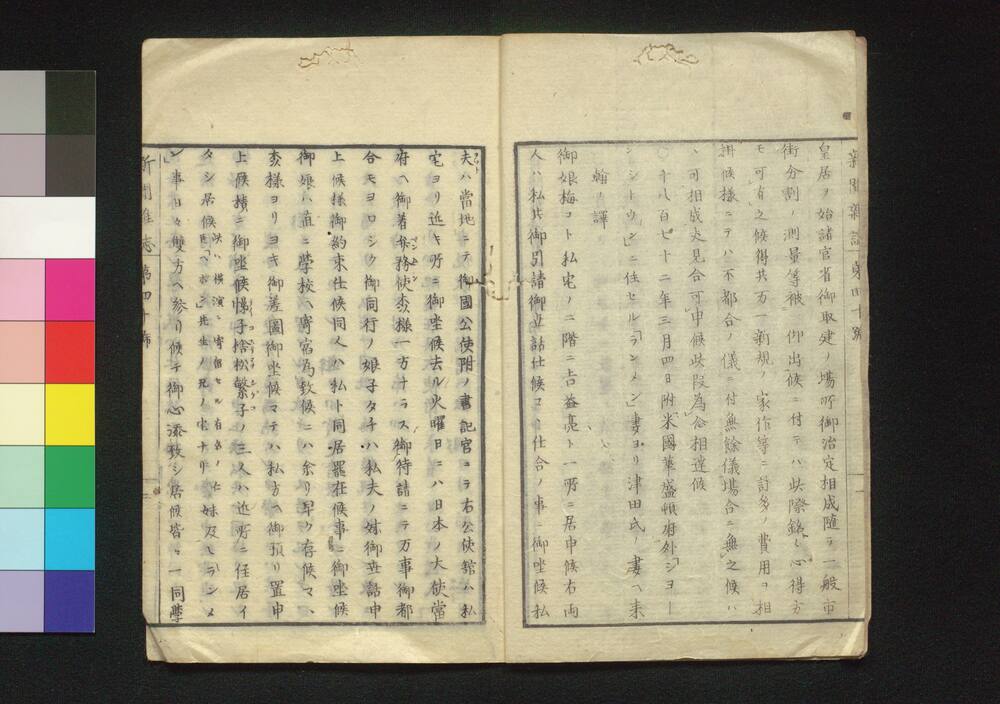 新聞雑誌 第四十號
皇居ノ始諸官省御取建ノ場所御治定相成随テ一般市
街分割ノ測量等被 仰出候ニ付テハ此際銘々心得方
モ可有之候得共万一新規ノ家作等ニ許多ノ費用ヲ相
掛候様ニテハ不都合ノ儀ニ付無餘儀場合ニ無之候ハ
ヽ可相成丈見合可申候此段為念相達候
○千八百七十二年三月四日附米國華盛頓府外「ジヨー
ジトウン」ニ住セル「ランメン」妻ヨリ津田氏ノ妻ヘ来
翰ノ譯
御娘梅コト私宅ノ二階ニ吉益亮ト一所ニ居申候右両
人ハ私共御引請御世話仕候コト仕合ノ事ニ御座候私
夫ハ當地ニテ御國公使附ノ書記官ニテ右公使舘ハ私
宅ヨリ近キ所ニ御坐候去ル火曜日ニハ日本ノ大使當
府ヘ御着弁務使森様一方ナラス御待請ニテ万事御都
合モヨロシク御同行ノ娘子タチハ私夫ノ妹御世話申
上候様御約束仕候同人ハ私ト同居罷在候事ニ御坐候
御娘ハ直ニ學校ヘ寄宿為致候ニハ余リ早ク存候マヽ
森様ヨリヨキ御差圖御坐候マテハ私方ヘ御預リ置申
上候積ニ御坐候悌子捨松繁子ノ三人ハ近所ニ住居イ
タシ居候
此ハ横濱ニ寄留セル有名ノ仁
ヘボン先生ノ兄ノ宅ナリ
妹及ヒ「ランメ
ン」事日々雙方ヘ参リ候テ御心添致シ居候皆々一同學
新聞雑誌 第四十號